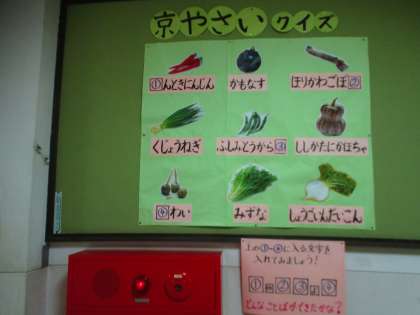 京やさいクイズ
①んときにんじん
かもなす
ほりかわごぼ②
くじょうねぎ
ふしみとうがら③
ししがたにかぼちゃ
④わい
みずな
しょうごいんだいこん
上の①~④に入る文字を
入れてみましょう!
どんなことばができたかな?